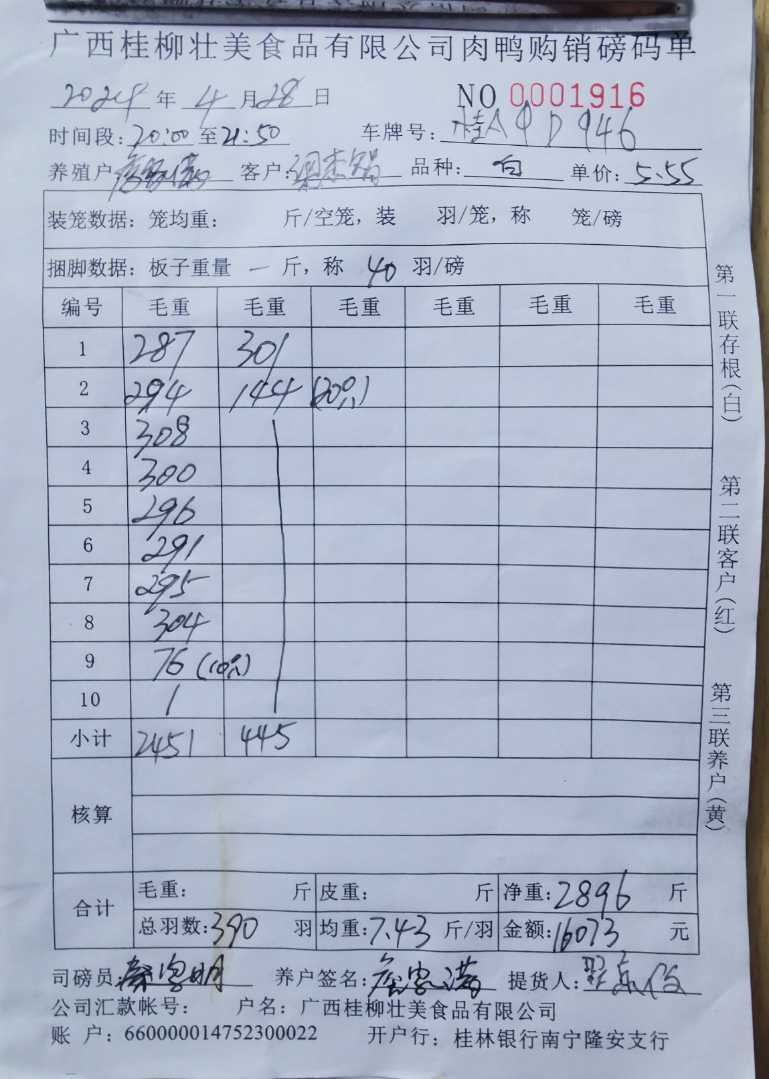 广西桂柳壮美食品有限公司肉鸭购销磅码单
2024年 4月28日 NO 0001916
时间段:20:00至21:50 车牌号:桂A D946
养殖户 客户: 品种: 白 单价: 5.55
装笼数据: 笼均重: 斤/空笼, 装 羽/笼, 称 笼/磅
捆脚数据: 板子重量 一 斤, 称 40 羽/磅
编号 毛重 毛重 毛重 毛重 毛重 毛重
1 287 301
2 294 144 (20只)
3 308
4 300
5 296
6 291
7 295
8 304
9 76 (10只)
10
小计 2451 445
核算
合计 毛重: 斤 皮重: 斤 净重: 2896 斤
总羽数: 390 羽 均重: 7.43 斤/羽 金额: 16073 元
司磅员 养户签名: 提货人:
公司汇款帐号: 户名: 广西桂柳壮美食品有限公司
账 户: 660000014752300022 开户行: 桂林银行南宁隆安支行
第一联存根(白)
第二联客户(红)
第三联养户(黄)